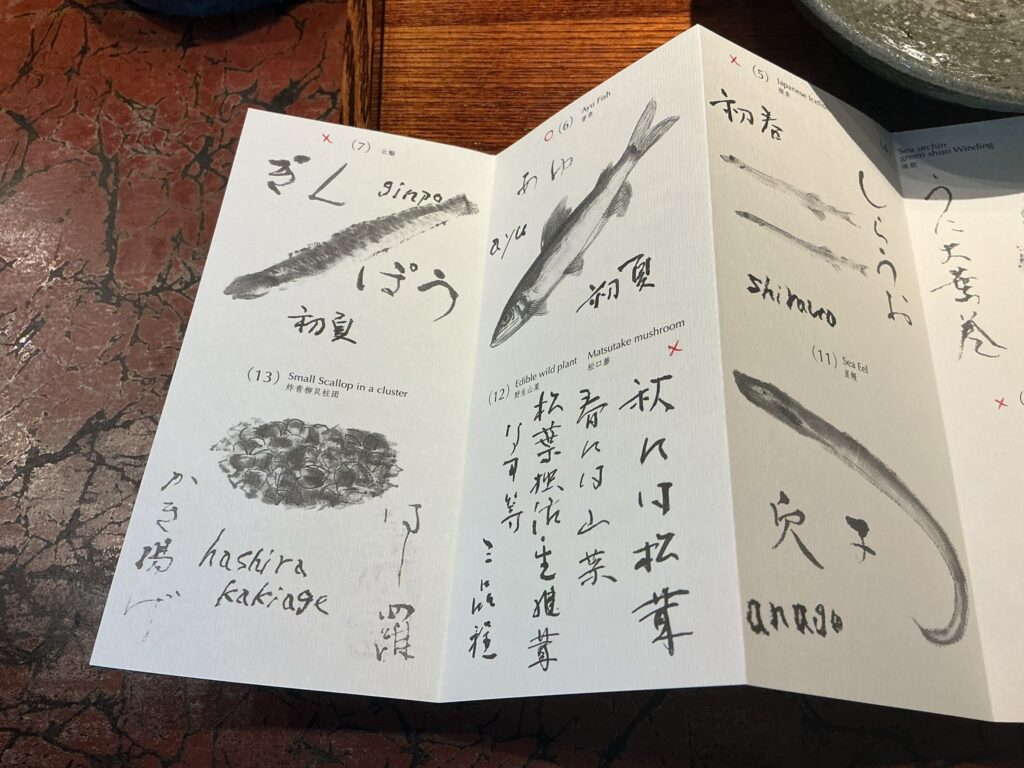 × (7) 云鳚
ぎん
ginpo
ぽう
初夏
(13) Small Scallop in a cluster
炸青柳贝柱团
かき揚げ
hashira
kakiage
はしら
○ (6) Ayu Fish
香魚
あゆ
ayu
初夏
(12) Edible wild plant Matsutake mushroom ×
野生山菜 松口蘑
秋には松茸
春には山菜
松葉独活・生椎茸
なす等
三品程
× (5) Japanese Icefish
銀魚
初春
しらうお
shirauo
(11) Sea Eel
星鳗
穴子
anago
Sea urchin
green shiso Winding
うに大葉巻
×